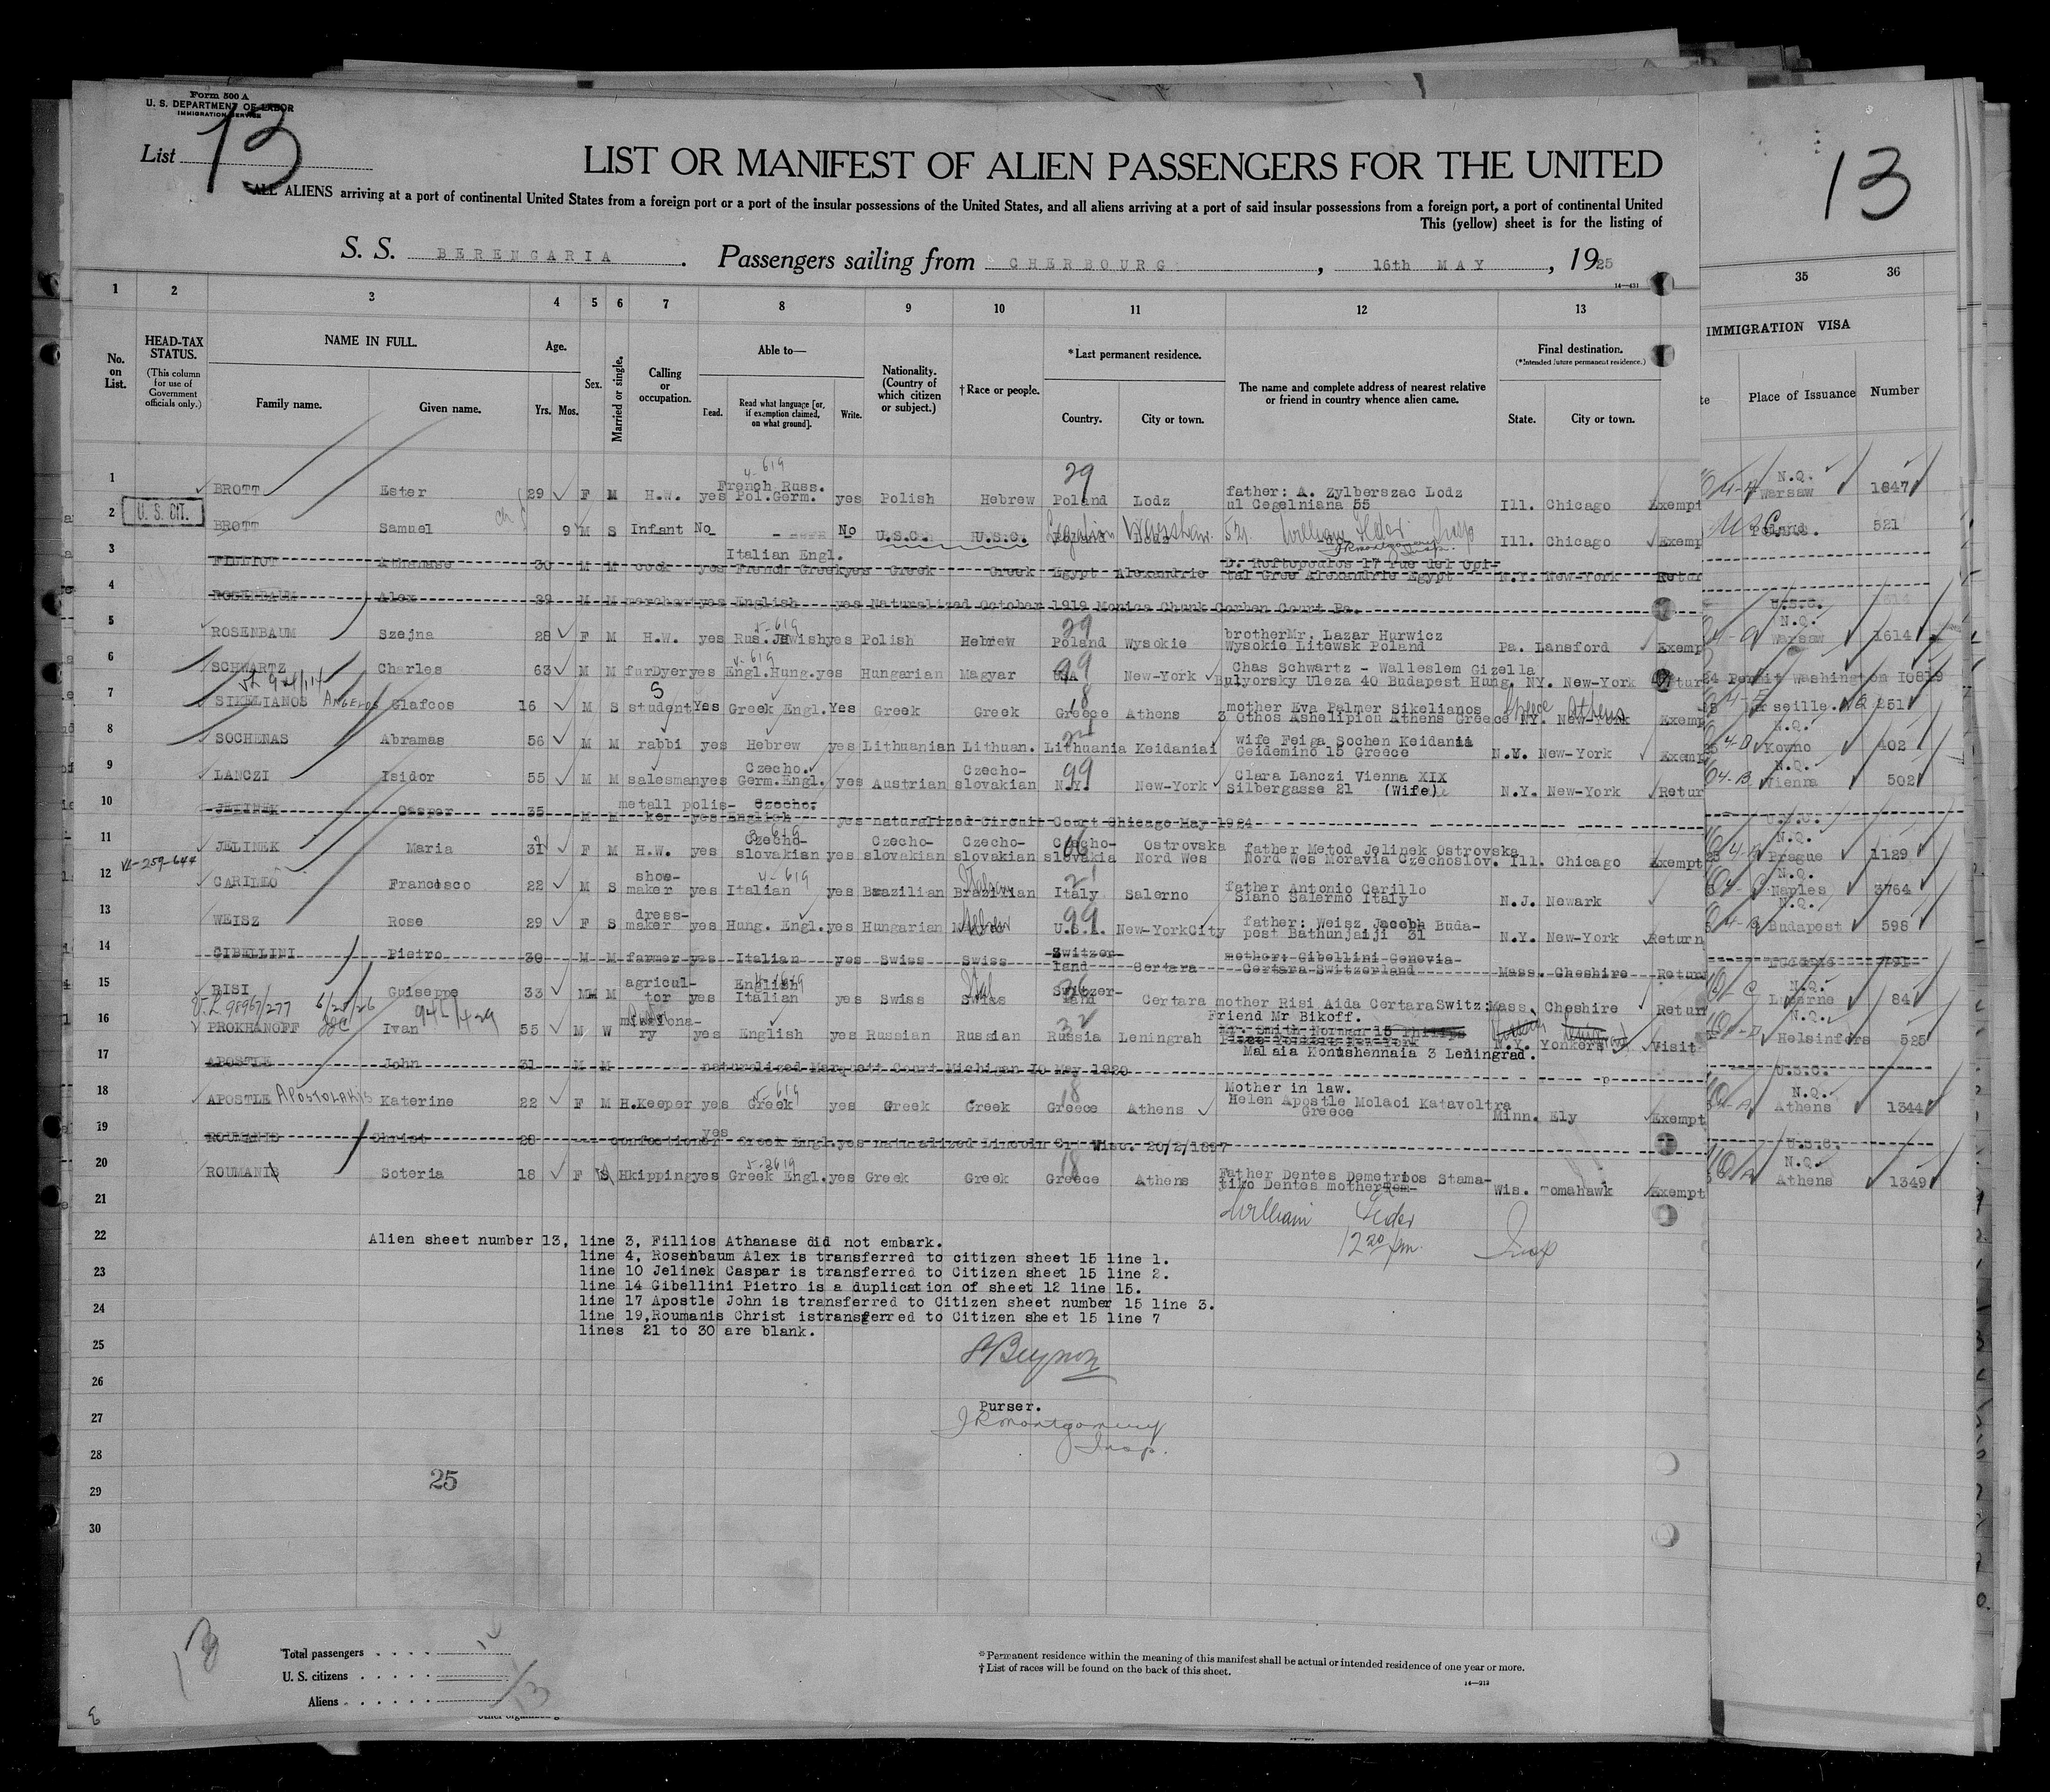 Form 500 A
U. S. DEPARTMENT OF LABOR
IMMIGRATION SERVICE
List 13
13
LIST OR MANIFEST OF ALIEN PASSENGERS FOR THE UNITED
ALL ALIENS arriving at a port of continental United States from a foreign port or a port of the insular possessions of the United States, and all aliens arriving at a port of said insular possessions from a foreign port, a port of continental United
This (yellow) sheet is for the listing of
S. S. BERENGARIA . Passengers sailing from CHERBOURG , 16th MAY , 1925
14—431
1 2 3 4 5 6 7 8 9 10 11 12 13 35 36
No. on List.
HEAD-TAX STATUS. (This column for use of Government officials only.)
NAME IN FULL. Family name. Given name.
Age. Yrs. Mos.
Sex.
Married or single.
Calling or occupation.
Able to— Read. Read what language [or, if exemption claimed, on what ground]. Write.
Nationality. (Country of which citizen or subject.)
† Race or people.
*Last permanent residence. Country. City or town.
The name and complete address of nearest relative or friend in country whence alien came.
Final destination. (*Intended future permanent residence.) State. City or town.
IMMIGRATION VISA
Place of Issuance Number
1 BROTT Ester 29 F M H.W. yes French Russ. Pol. Germ. yes Polish Hebrew Poland Lodz father: A. Zylberszac Lodz ul Cegelniana 55 Ill. Chicago Exempt N.Q. Warsaw 1647
2 U. S. CIT. BROTT Samuel 9 M S Infant No No U.S.C. U.S.C. Ill. Chicago Exemp 521
3 FILLIOT Athanase 30 M M cook yes Italian Engl. French Greek yes Greek Greek Egypt Alexandrie D. Roftopoulos 17 rue del Opi- tal Grec Alexandrie Egypt N.Y. New-York Retur
4 ROSENBAUM Alex 29 M M merchant yes English yes Naturalized October 1919 Monica Chunk Corben Court Pa. U.S.C.
5 ROSENBAUM Szejna 28 F M H.W. yes Rus. Jewish yes Polish Hebrew Poland Wysokie brother Mr. Lazar Hurwicz Wysokie Litewsk Poland Pa. Lansford Exemp N.Q. Warsaw 1614
6 SCHWARTZ Charles 63 M M fur Dyer yes Engl. Hung. yes Hungarian Magyar USA New-York Chas Schwartz - Walleslem Gizella Bulyorsky Uleza 40 Budapest Hung. NY. New-York Retur Permit Washington 10819
7 SIKELIANOS Angelos Glafcos 16 M S student Yes Greek Engl. Yes Greek Greek Greece Athens mother Eva Palmer Sikelianos 3 Othos Ashelipiou Athens Greece NY. New-York Greece Athens Exemp 251
8 SOCHENAS Abramas 56 M M rabbi yes Hebrew yes Lithuanian Lithuan. Lithuania Keidaniai wife Feiga Sochen Keidania Ceidemino 15 Greece N.Y. New-York Exemp N.Q. Kowno 402
9 LANCZI Isidor 55 M M salesman yes Czecho. Germ. Engl. yes Austrian Czecho-slovakian N.Y. New-York Clara Lanczi Vienna XIX Silbergasse 21 (Wife) N.Y. New-York Retur N.Q. Vienna 502
10 JELINEK Casper 35 M M metall polis- ker yes Czecho. English yes naturalized Circuit Court Chicago May 1924
11 JELINEK Maria 31 F M H.W. yes Czecho-slovakian yes Czecho-slovakian Czecho-slovakian Czecho-slovakia Ostrovska Nord Wes father Metod Jelinek Ostrovska Nord Wes Moravia Czechoslov. Ill. Chicago Exempt N.Q. Prague 1129
12 CARILLO Francisco 22 M S shoe-maker yes Italian yes Brazilian Brazilian Italian Italy Salerno father Antonio Carillo Siano Salermo Italy N.J. Newark N.Q. Naples 3764
13 WEISZ Rose 29 F S dress-maker yes Hung. Engl. yes Hungarian Hebrew U.S.A. New-York City father: Weisz Jacobh Buda- pest Bathunjaiji 31 N.Y. New-York Return N.Q. Budapest 598
14 GIBELLINI Pietro 30 M M farmer yes Italian yes Swiss Swiss Switzer-land Certara mother: Gibellini Genovia- Certara Switzerland Mass. Cheshire Return
15 RISI Guiseppe 33 M M agricul-tor yes English Italian yes Swiss Swiss Switzer-land Certara mother Risi Aida Certara Switz: Mass. Cheshire Return N.Q. Lucerne 84
16 PROKHANOFF Ivan 55 M W missiona-ry yes English yes Russian Russian Russia Leningrah Friend Mr Bikoff. Malaia Konushennaia 3 Leningrad. N.Y. Yonkers Visit N.Q. Helsinfors 525
17 APOSTLE John 31 M M naturalized Marquett Court Michigan 10 May 1920 U.S.C.
18 APOSTLE APOSTOLAKIS Katerine 22 F M H.Keeper yes Greek yes Greek Greek Greece Athens Mother in law. Helen Apostle Molaoi Katavoltra Greece Minn. Ely Exempt N.Q. Athens 1344
19 ROUMANIS Christ 28 confectioner yes Greek Engl. yes naturalized Lincoln Cr. Wisc. 20/2/1897 U.S.C.
20 ROUMANIS Soteria 18 F S Hkipping yes Greek Engl. yes Greek Greek Greece Athens Father Dentes Demetrios Stama- tiko Dentes mother Dem- Wis. Tomahawk Exempt N.Q. Athens 1349
21 William Feder
12 20 pm. Insp
22 Alien sheet number 13, line 3, Fillios Athanase did not embark.
line 4, Rosenbaum Alex is transferred to citizen sheet 15 line 1.
23 line 10 Jelinek Caspar is transferred to Citizen sheet 15 line 2.
line 14 Gibellini Pietro is a duplication of sheet 12 line 15.
24 line 17 Apostle John is transferred to Citizen sheet number 15 line 3.
line 19, Roumanis Christ istransgerred to Citizen sheet 15 line 7
lines 21 to 30 are blank.
25
26
Purser.
27 J R Montgomery
Insp.
28
25
29
30
13
Total passengers . . . .
U. S. citizens . . . . .
Aliens . . . . . . 13
*Permanent residence within the meaning of this manifest shall be actual or intended residence of one year or more.
† List of races will be found on the back of this sheet.